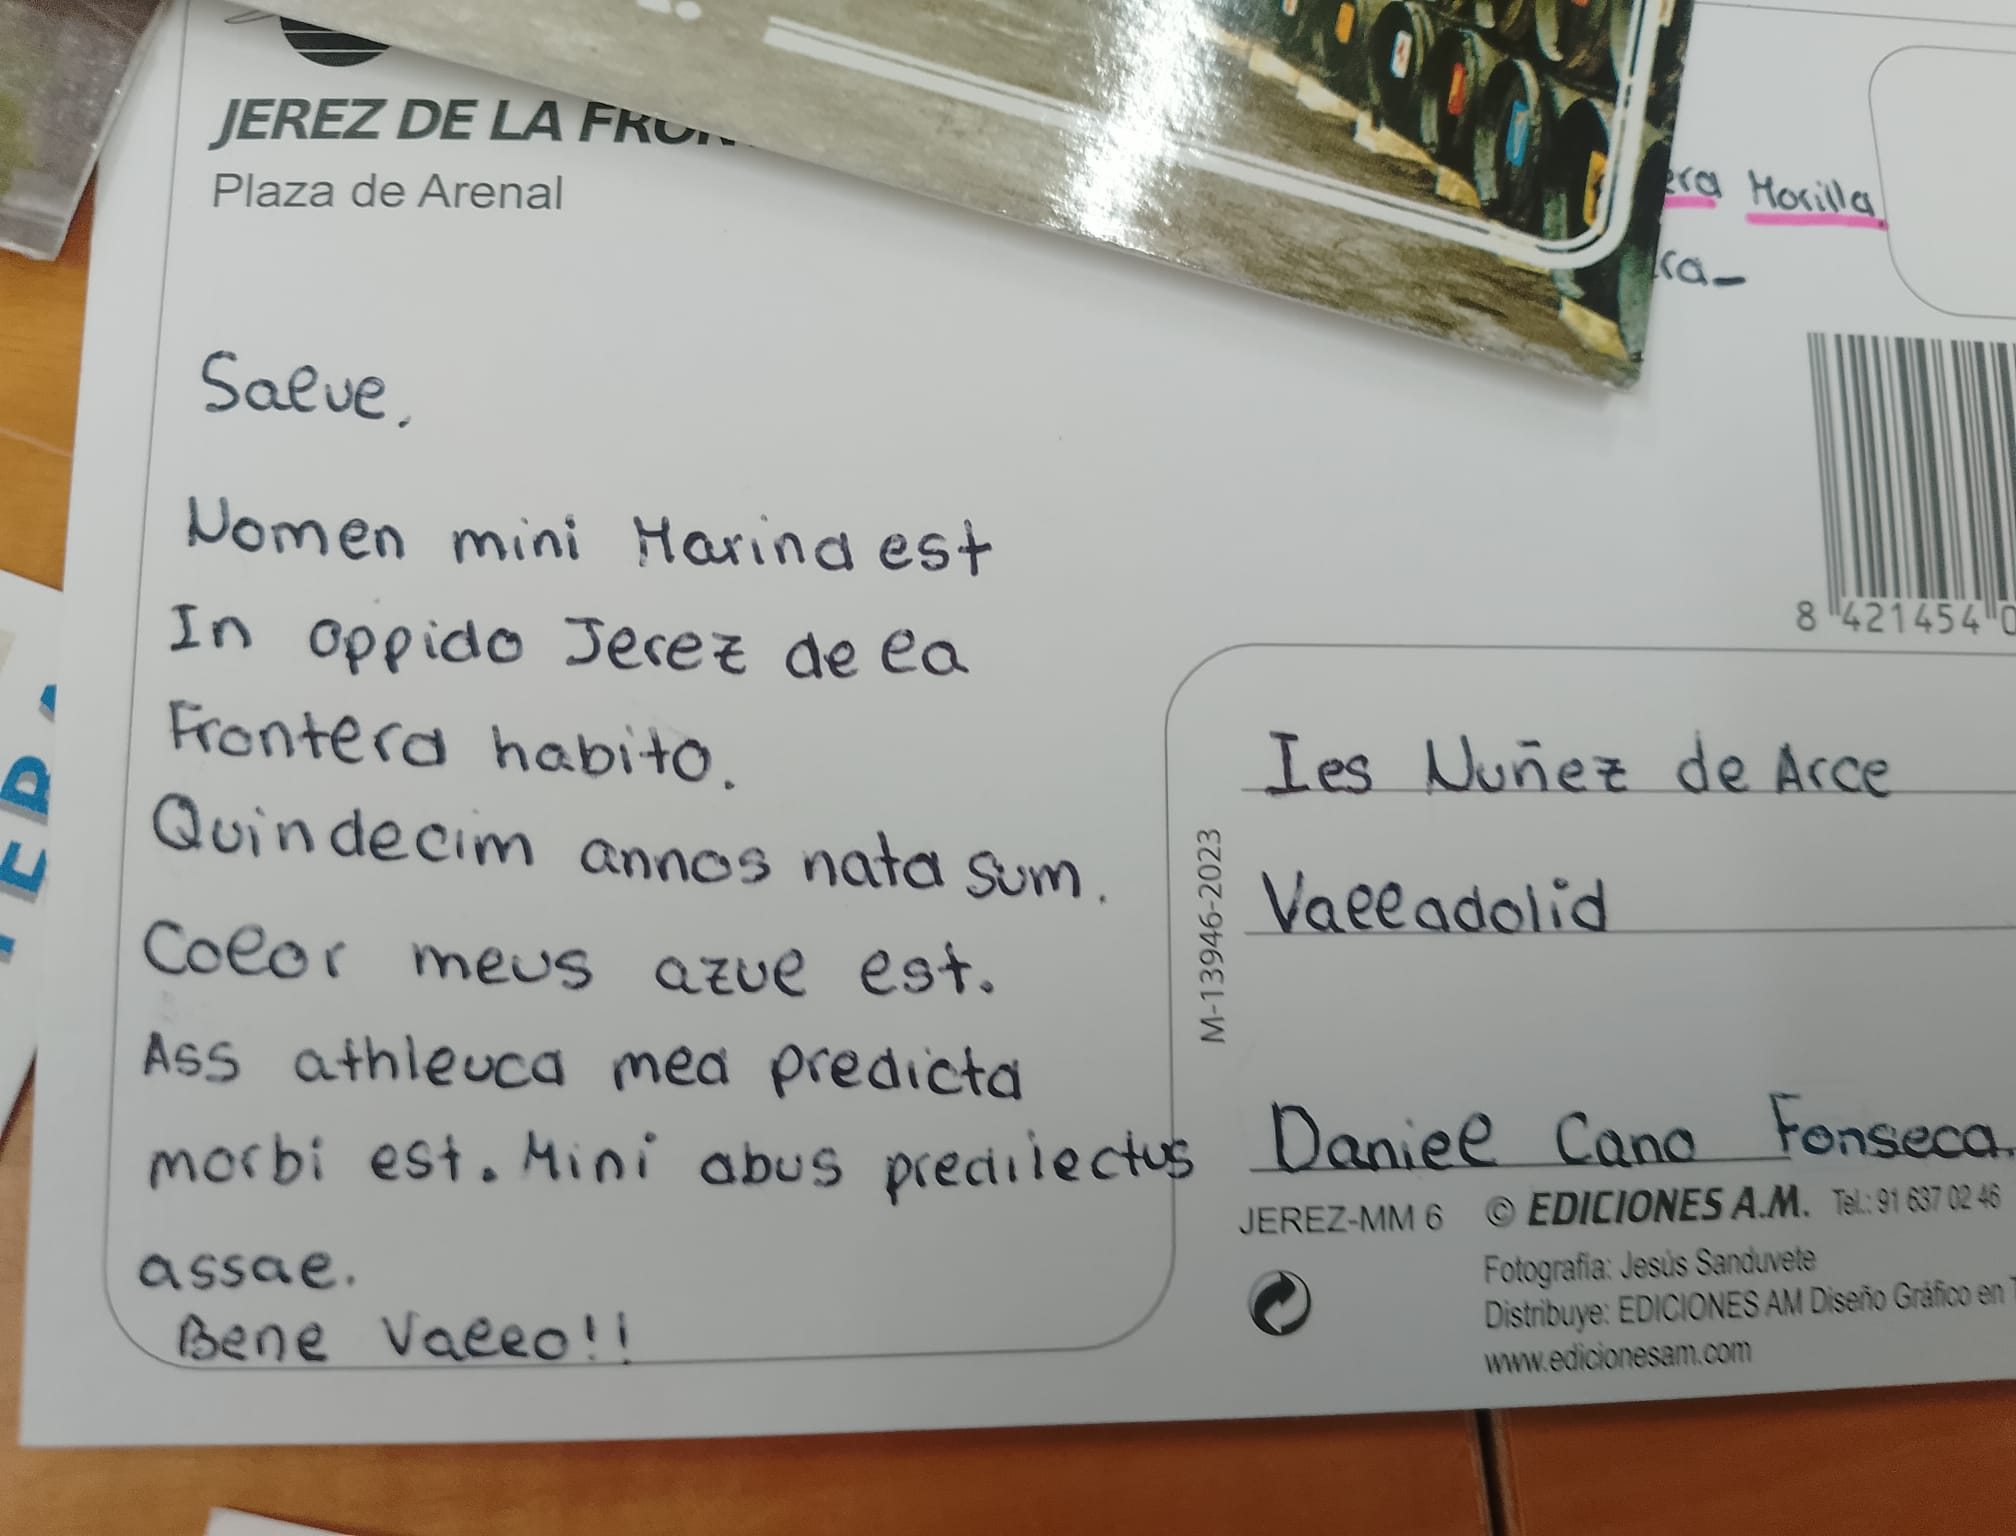 JEREZ DE LA
Plaza de Arenal
Morilla
Salve,
Nomen mini Marina est
In oppido Jerez de la
Frontera habito.
Quindecim annos nata sum.
Color meus azul est.
Ass athleuca mea predicta
morbi est. Mini abus predilectus
assae.
Bene Valeo!!
8 421454 0
M-13946-2023
Ies Nuñez de Arce
Valladolid
Daniel Cano Fonseca.
JEREZ-MM 6 © EDICIONES A.M. Tel.: 91 637 02 46
Fotografía: Jesús Sanduvete
Distribuye: EDICIONES AM Diseño Gráfico en
www.edicionesam.com